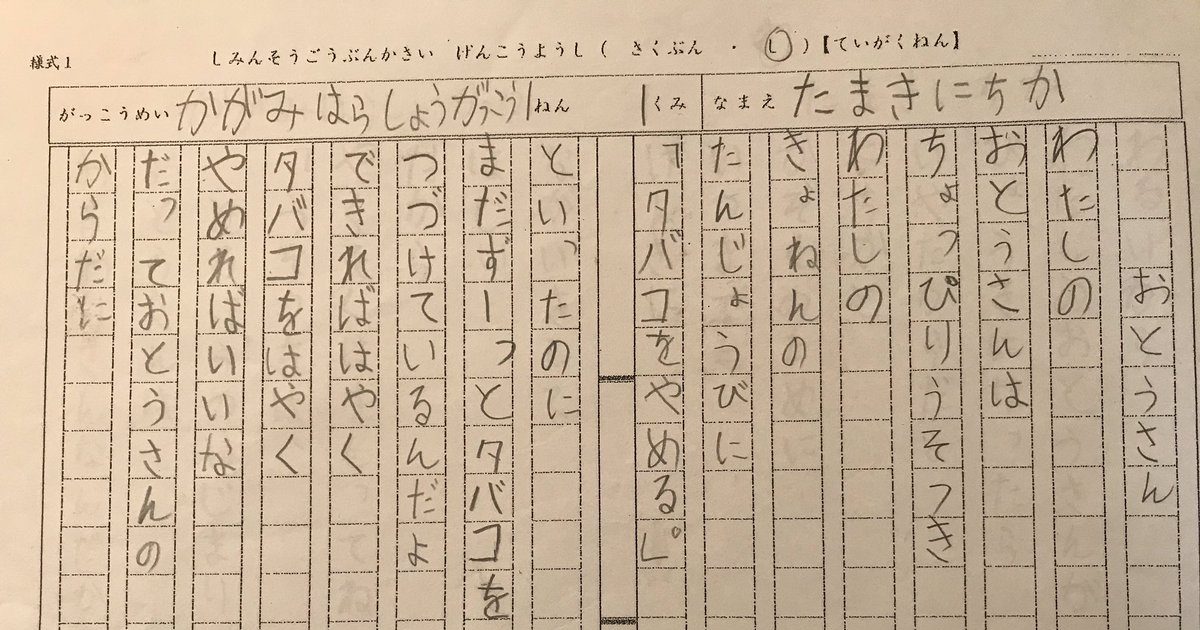 様式1
しみんそうごうぶんかさい げんこうようし ( さくぶん ・ し )【ていがくねん】
がっこうめい かがみはらしょうがっこう 1 ねん 1 くみ なまえ たまきにちか
おとうさん
わたしの
おとうさんは
ちょっぴりうそつき
わたしの
きょねんの
たんじょうびに
「タバコをやめる」。
といったのに
まだずーっとタバコを
つづけているんだよ
できればはやく
タバコをはやく
やめればいいな
だっておとうさんの
からだに